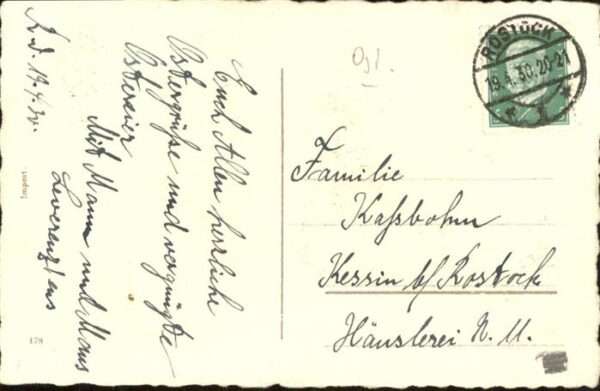 R. d. 19.4.30.
Euch Allen herzliche
Ostergrüße und vergnügte
Ostereier
Mit Mann und Maus
Leverenz'ens
178
Osl.
ROSTOCK
19.4.30.20-21
Familie
Kassbohm
Kessin b/Rostock
Häuslerei N.